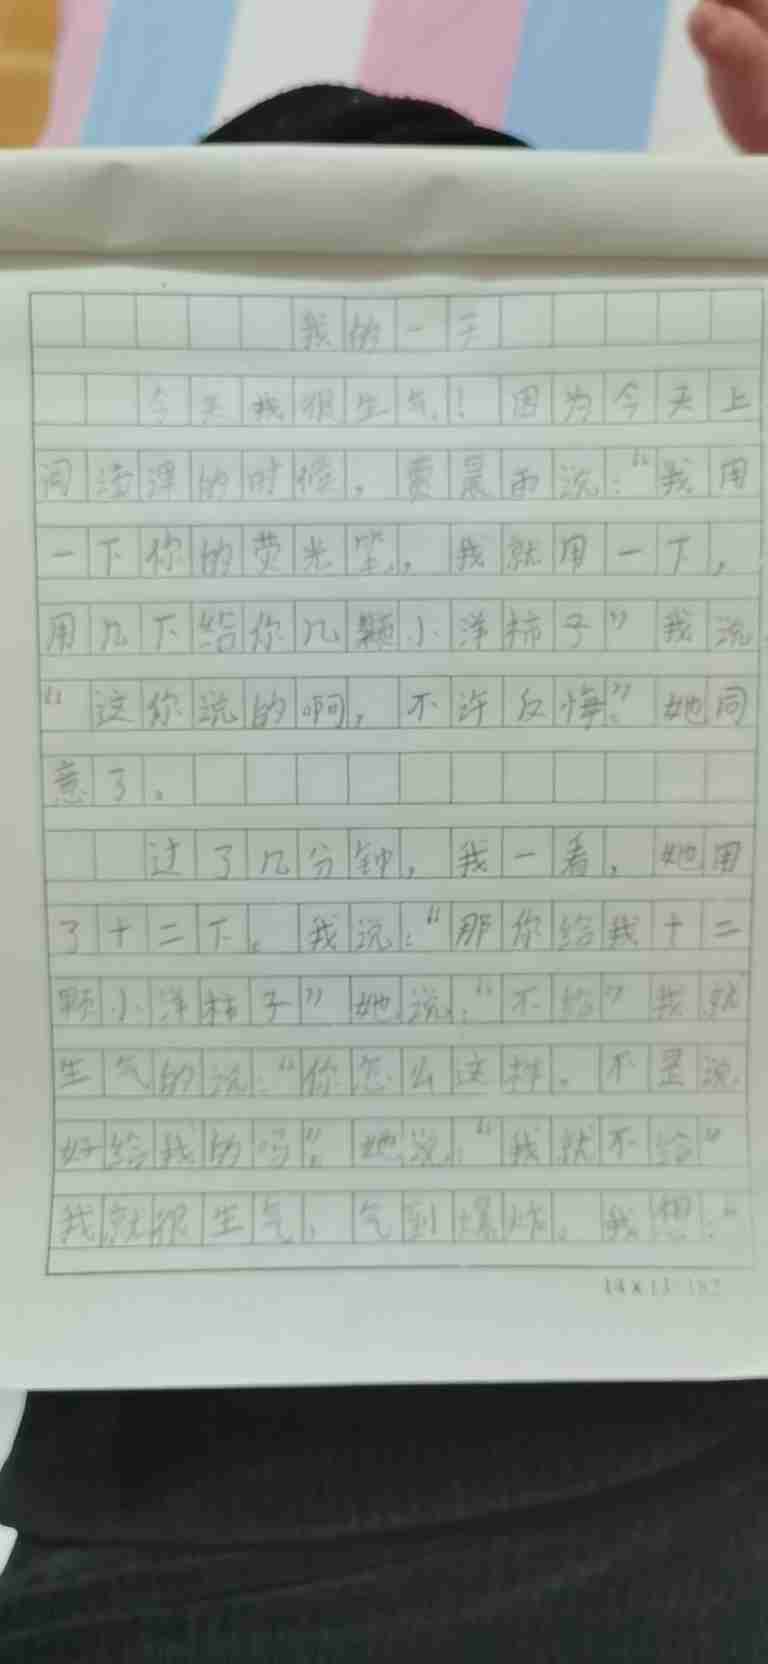 我的一天
今天我很生气！因为今天上
词语课的时候，晨雨说：“我用
一下你的荧光笔，我就用一下，
用几下给你几颗小洋柿子”我说
“这你说的啊，不许反悔”。她同
意了。
过了几分钟，我一看，她用
了十二下。我说：“那你给我十二
颗小洋柿子”她说：“不给”我就
生气的说：“你怎么这样。不是说
好给我的吗”。她说：“我就不给”
我就很生气，气到爆炸。我想：“